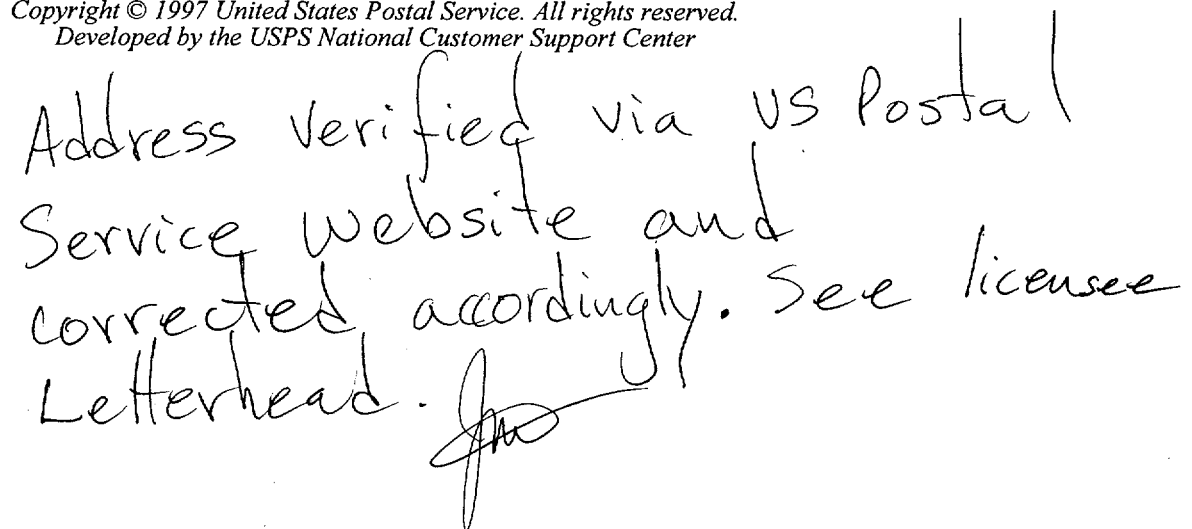 Copyright © 1997 United States Postal Service. All rights reserved.
Developed by the USPS National Customer Support Center
Address verified via US Postal
Service website and
corrected accordingly. See licensee
Letterhead.